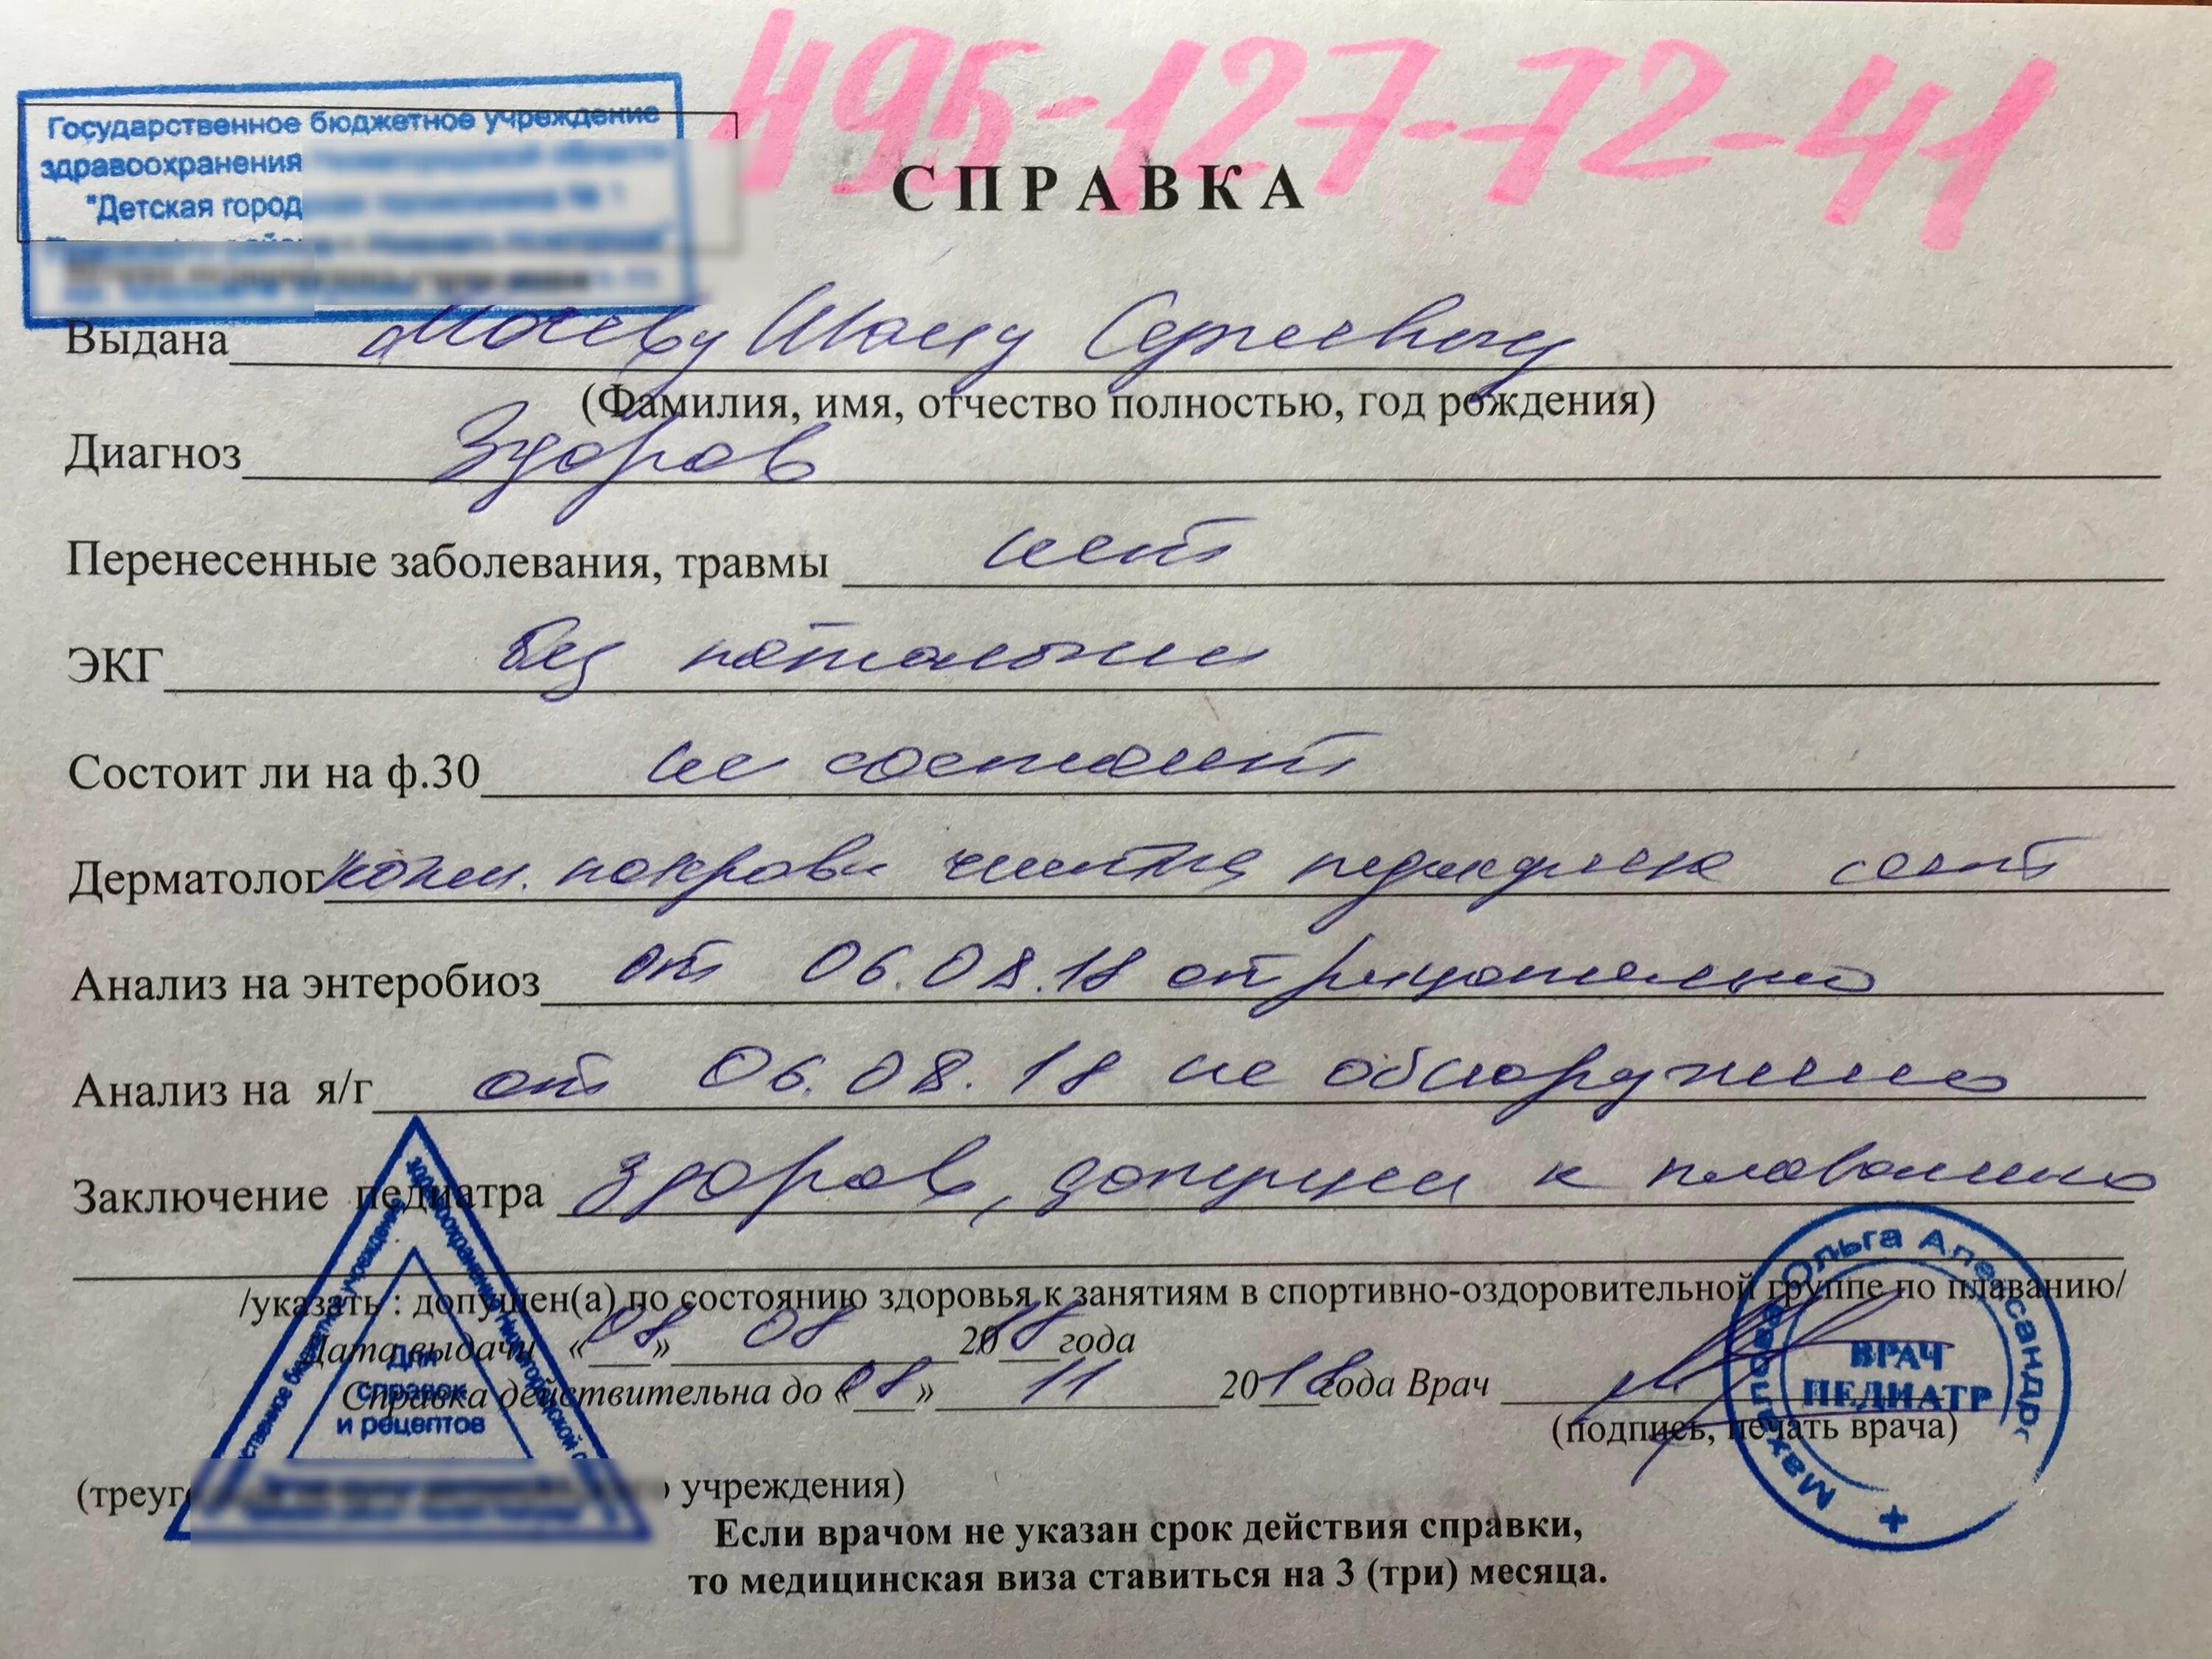 495-127-72-41
Государственное бюджетное учреждение
здравоохранения
"Детская город
СПРАВКА
Выдана Сергеевичу
(Фамилия, имя, отчество полностью, год рождения)
Диагноз Здоров
Перенесенные заболевания, травмы нет
ЭКГ без патологии
Состоит ли на ф.30 не состоит
Дерматолог кожн. покровы чистые педикулеза нет
Анализ на энтеробиоз от 06.08.18 отрицательно
Анализ на я/г от 06.08.18 не обнаружено
Заключение педиатра Здоров, допущен к плаванию
/указать : допущен(а) по состоянию здоровья к занятиям в спортивно-оздоровительной группе по плаванию/
Дата выдачи «08» 08 2018 года
Справка действительна до «08» 11 2018 года Врач
(подпись, печать врача)
Для
справок
и рецептов
Ольга Александр
ВРАЧ
ПЕДИАТР
учреждения)
Если врачом не указан срок действия справки,
то медицинская виза ставиться на 3 (три) месяца.